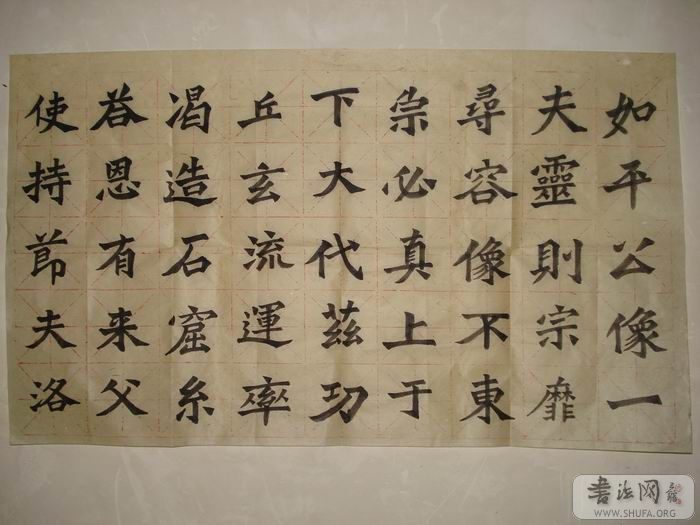 如平公像一
夫靈則宗靡
尋容像不東
崇必真上于
下大代茲功
丘玄流運率
渴造石窟系
荅恩有来父
使持莭夫洛
书法网
WWW.SHUFA.ORG